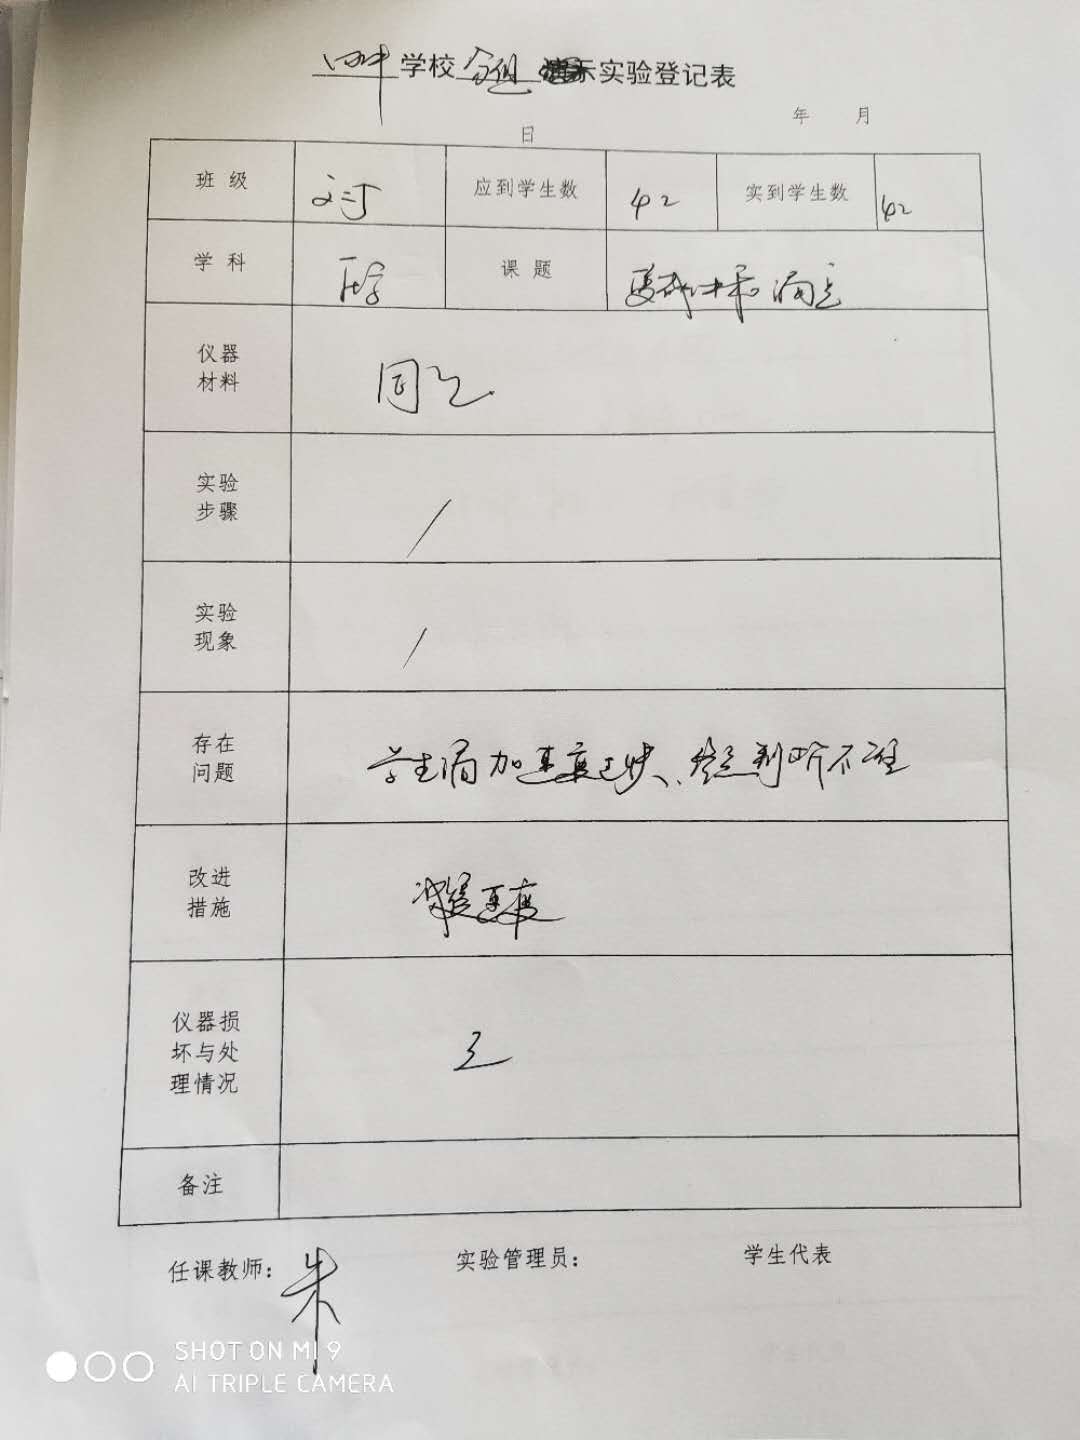 学校 分组 实验登记表
年 月
日
班级 应到学生数 42 实到学生数 42
学科 化学 课题 滴定
仪器
材料 同上
实验
步骤 /
实验
现象 /
存在
问题 学生滴加速度过快、终点判断不准
改进
措施 减缓速度
仪器损
坏与处
理情况 无
备注
任课教师: 朱 实验管理员: 学生代表
SHOT ON MI 9
AI TRIPLE CAMERA